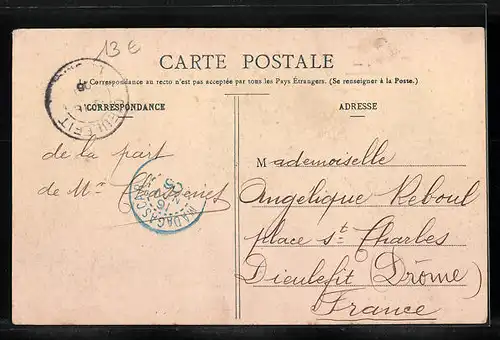 13 €
CARTE POSTALE
La Correspondance au recto n'est pas acceptée par tous les Pays Étrangers. (Se renseigner à la Poste.)
CORRESPONDANCE
ADRESSE
DIEULEFIT
de la part
de Mr
MADAGASCAR
Mademoiselle
Angelique Reboul
place St Charles
Dieulefit (Drôme)
France